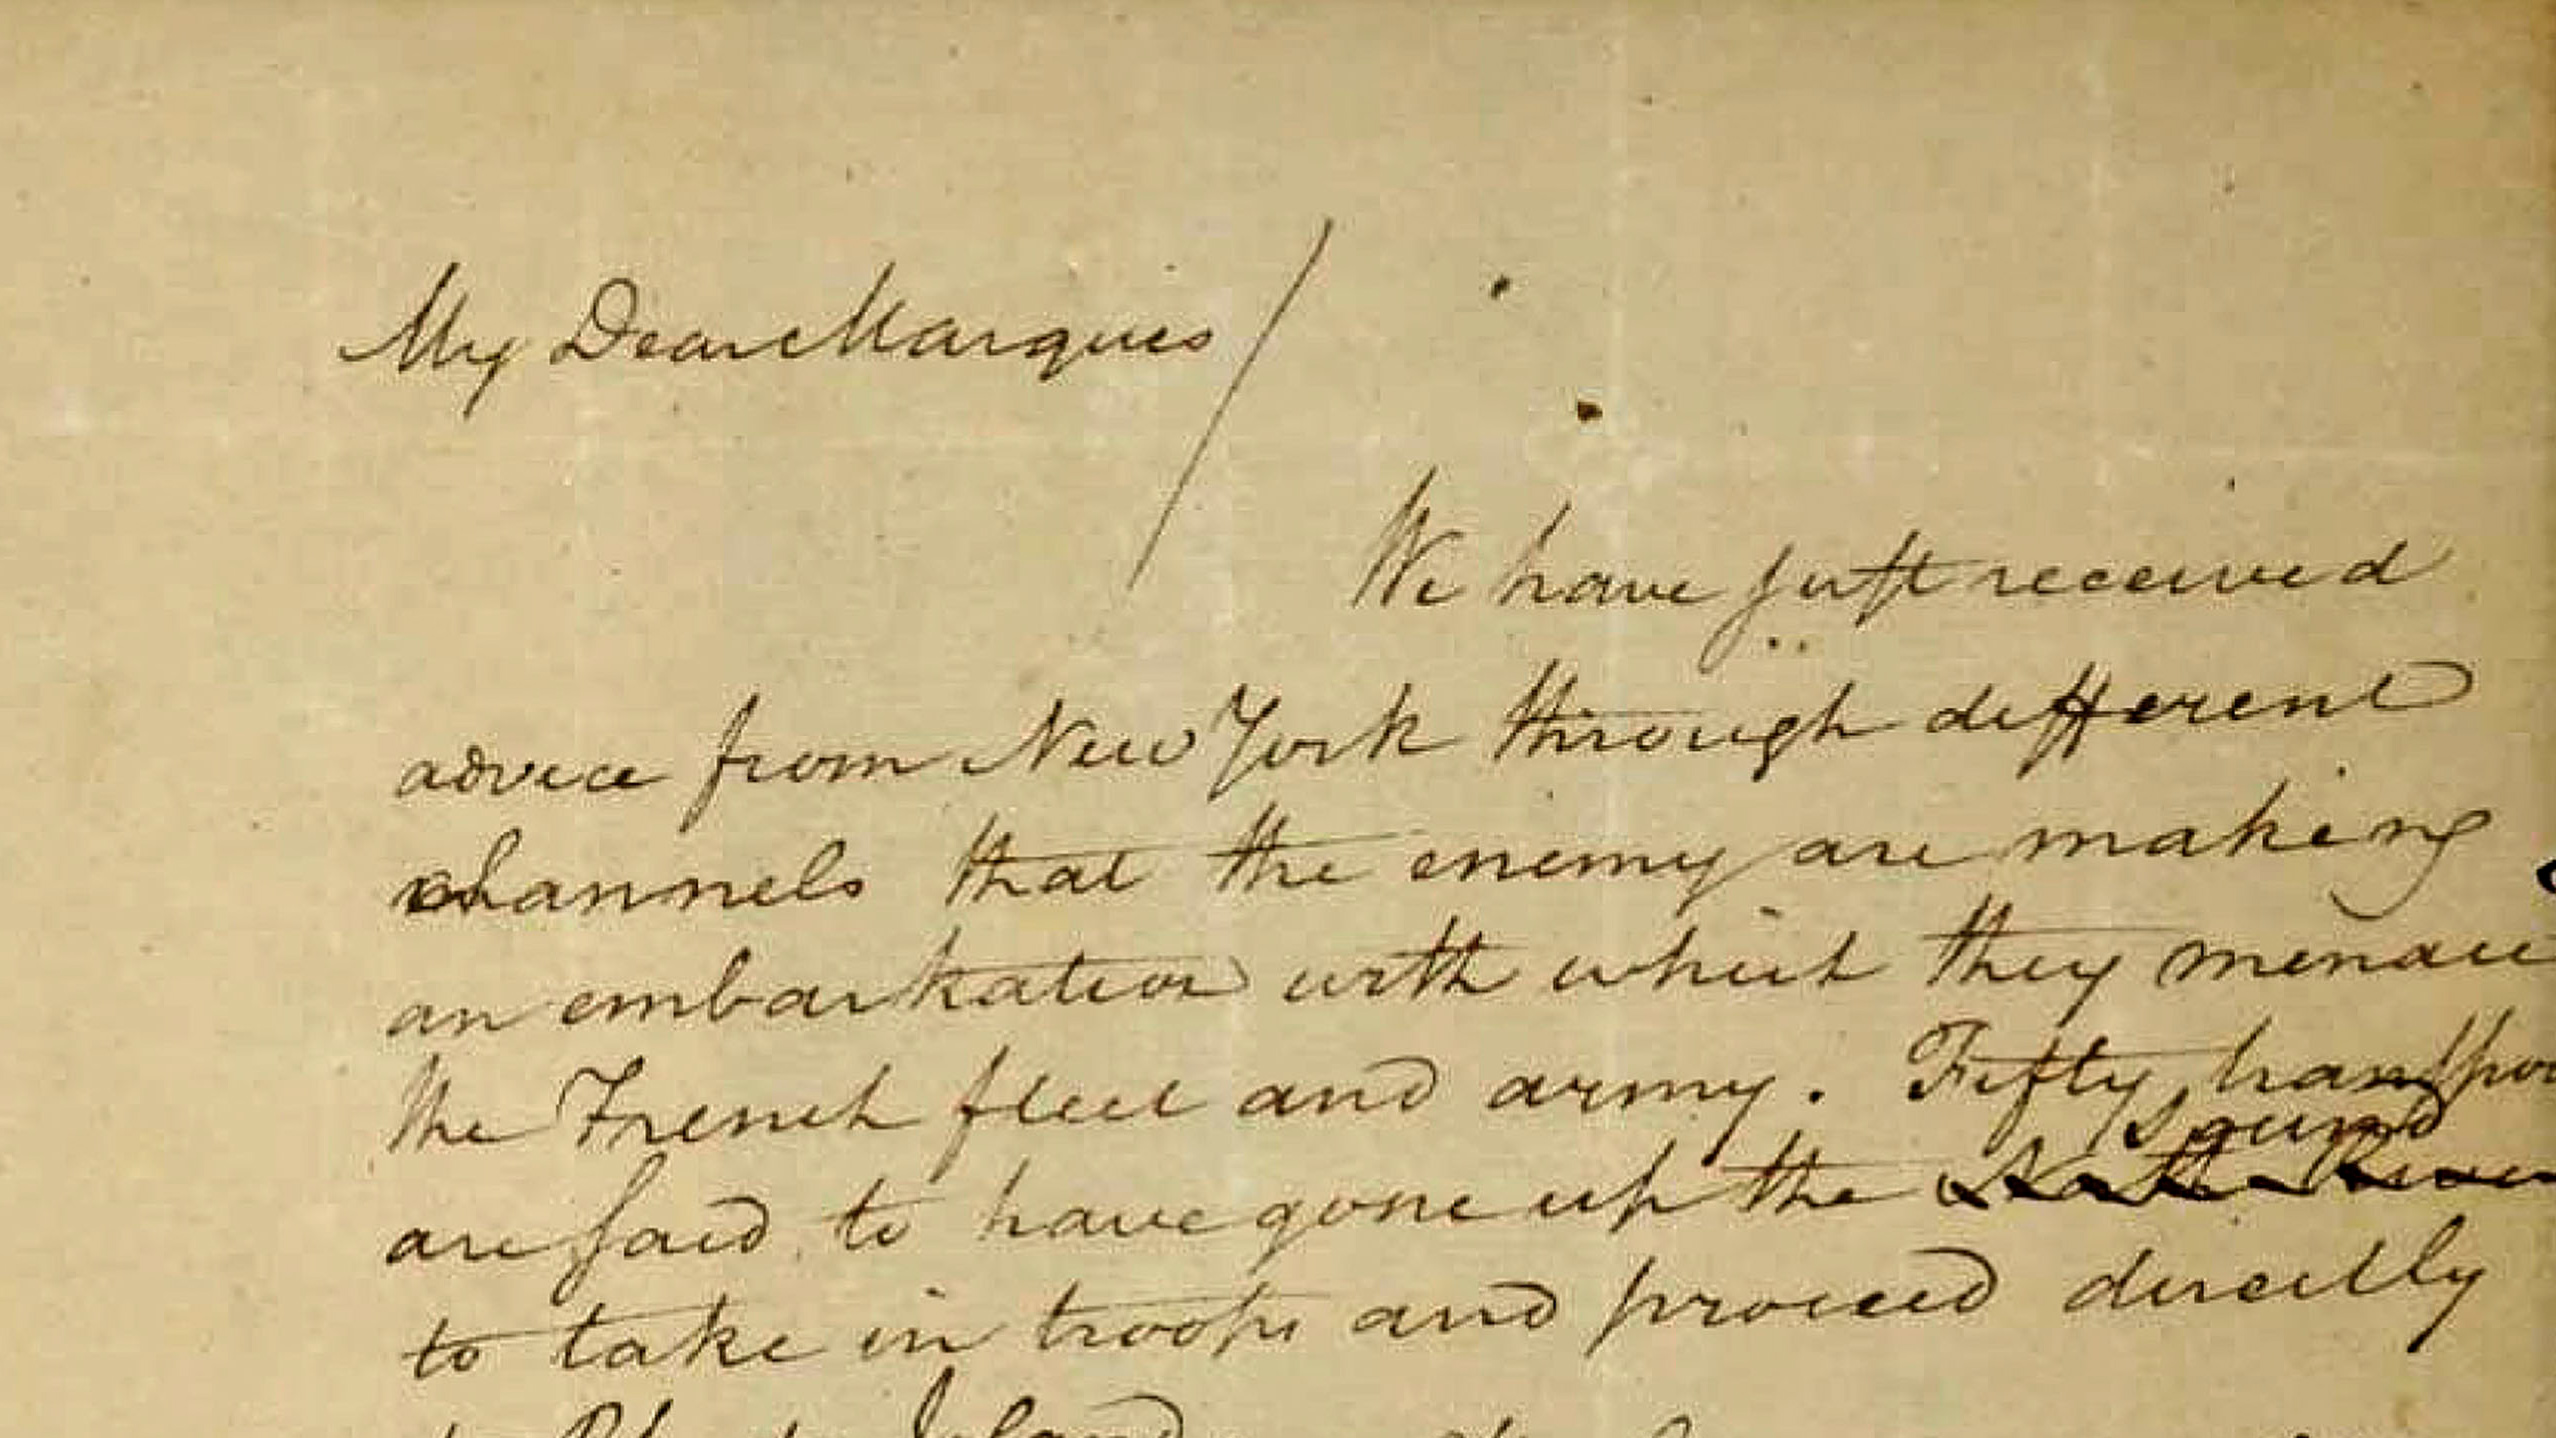 My Dear Marquis
We have just received
advice from New York through different
channels that the enemy are making
an embarkation with which they menace
the French fleet and army. Fifty transpor
are said to have gone up the
sound
North River
to take in troops and proceed directly
to Rhode Island